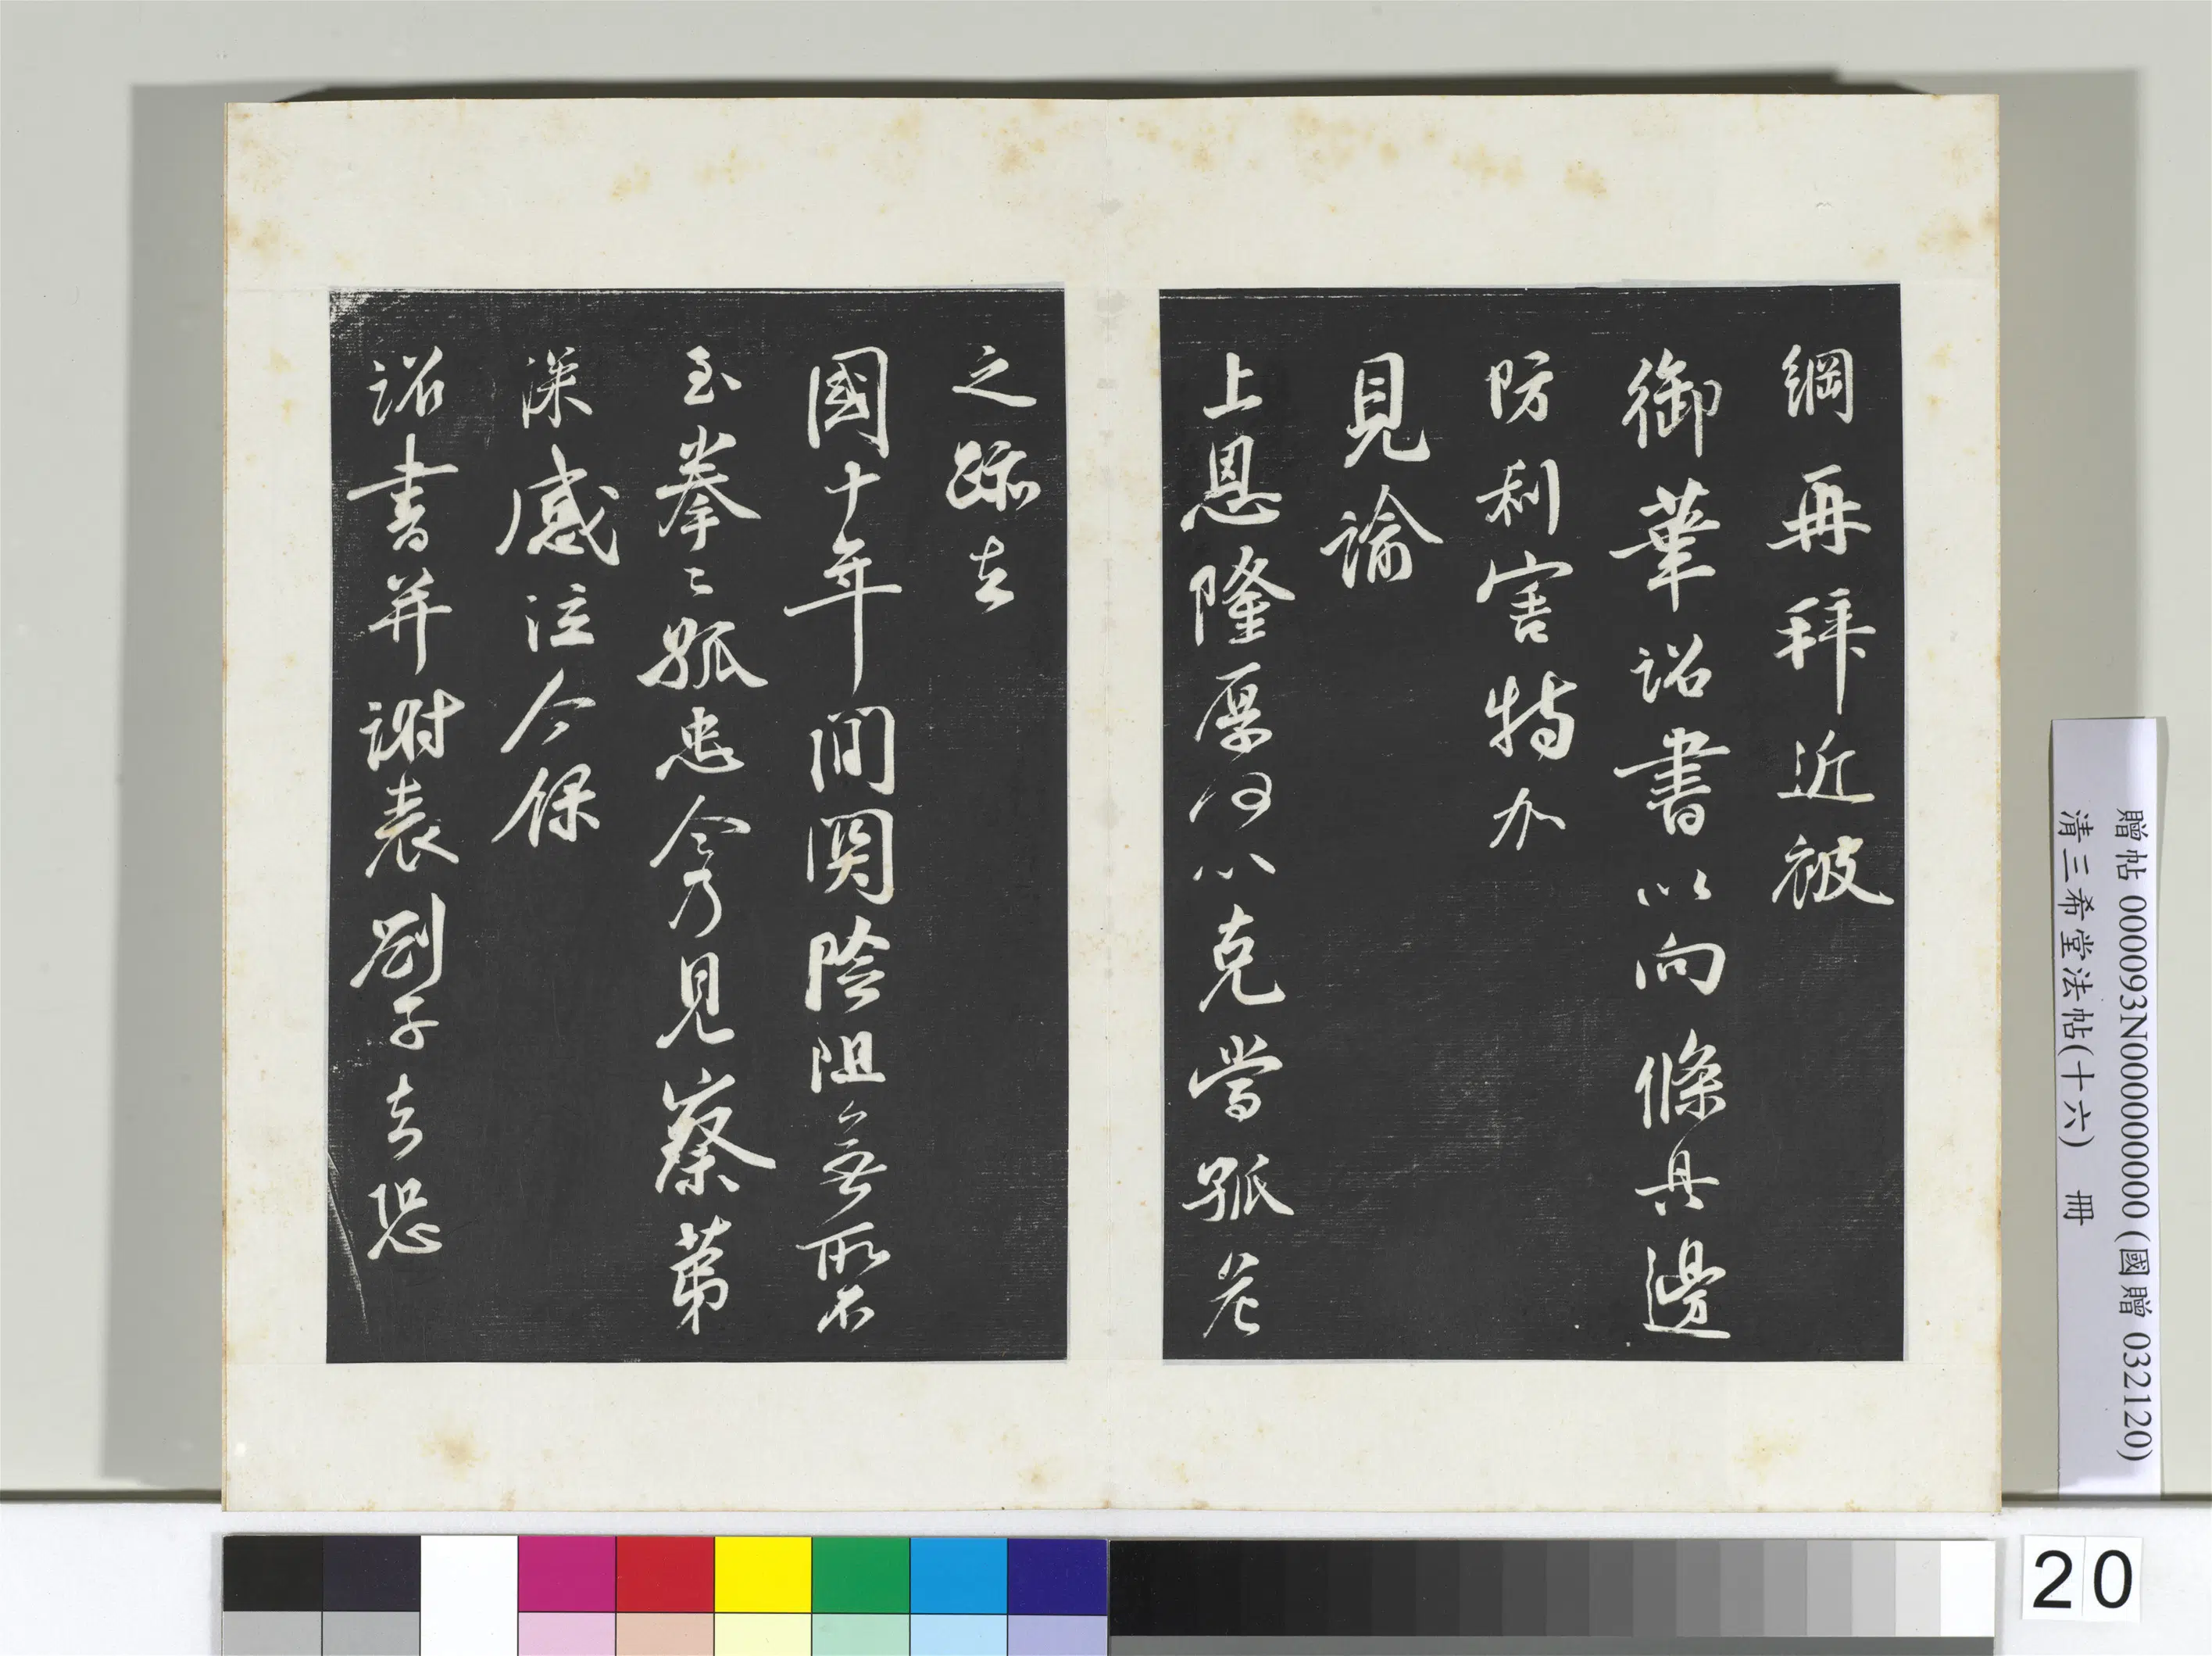 綱再拜近被
御筆詔書以向條具邊
防利害特加
見諭
上恩隆厚何以克當孤危
之跡去
國十年間關險阻無所不
至拳〻孤忠今乃見察第
深感泣今保
詔書并謝表劄子去恐
贈帖 000093N000000000 (國贈 032120)
清三希堂法帖(十六) 冊
20